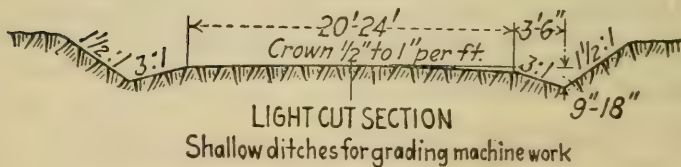 20'-24'
3'6"
1½:1
3:1
Crown ½" to 1" per ft.
3:1
1½:1
9"-18"
LIGHT CUT SECTION
Shallow ditches for grading machine work